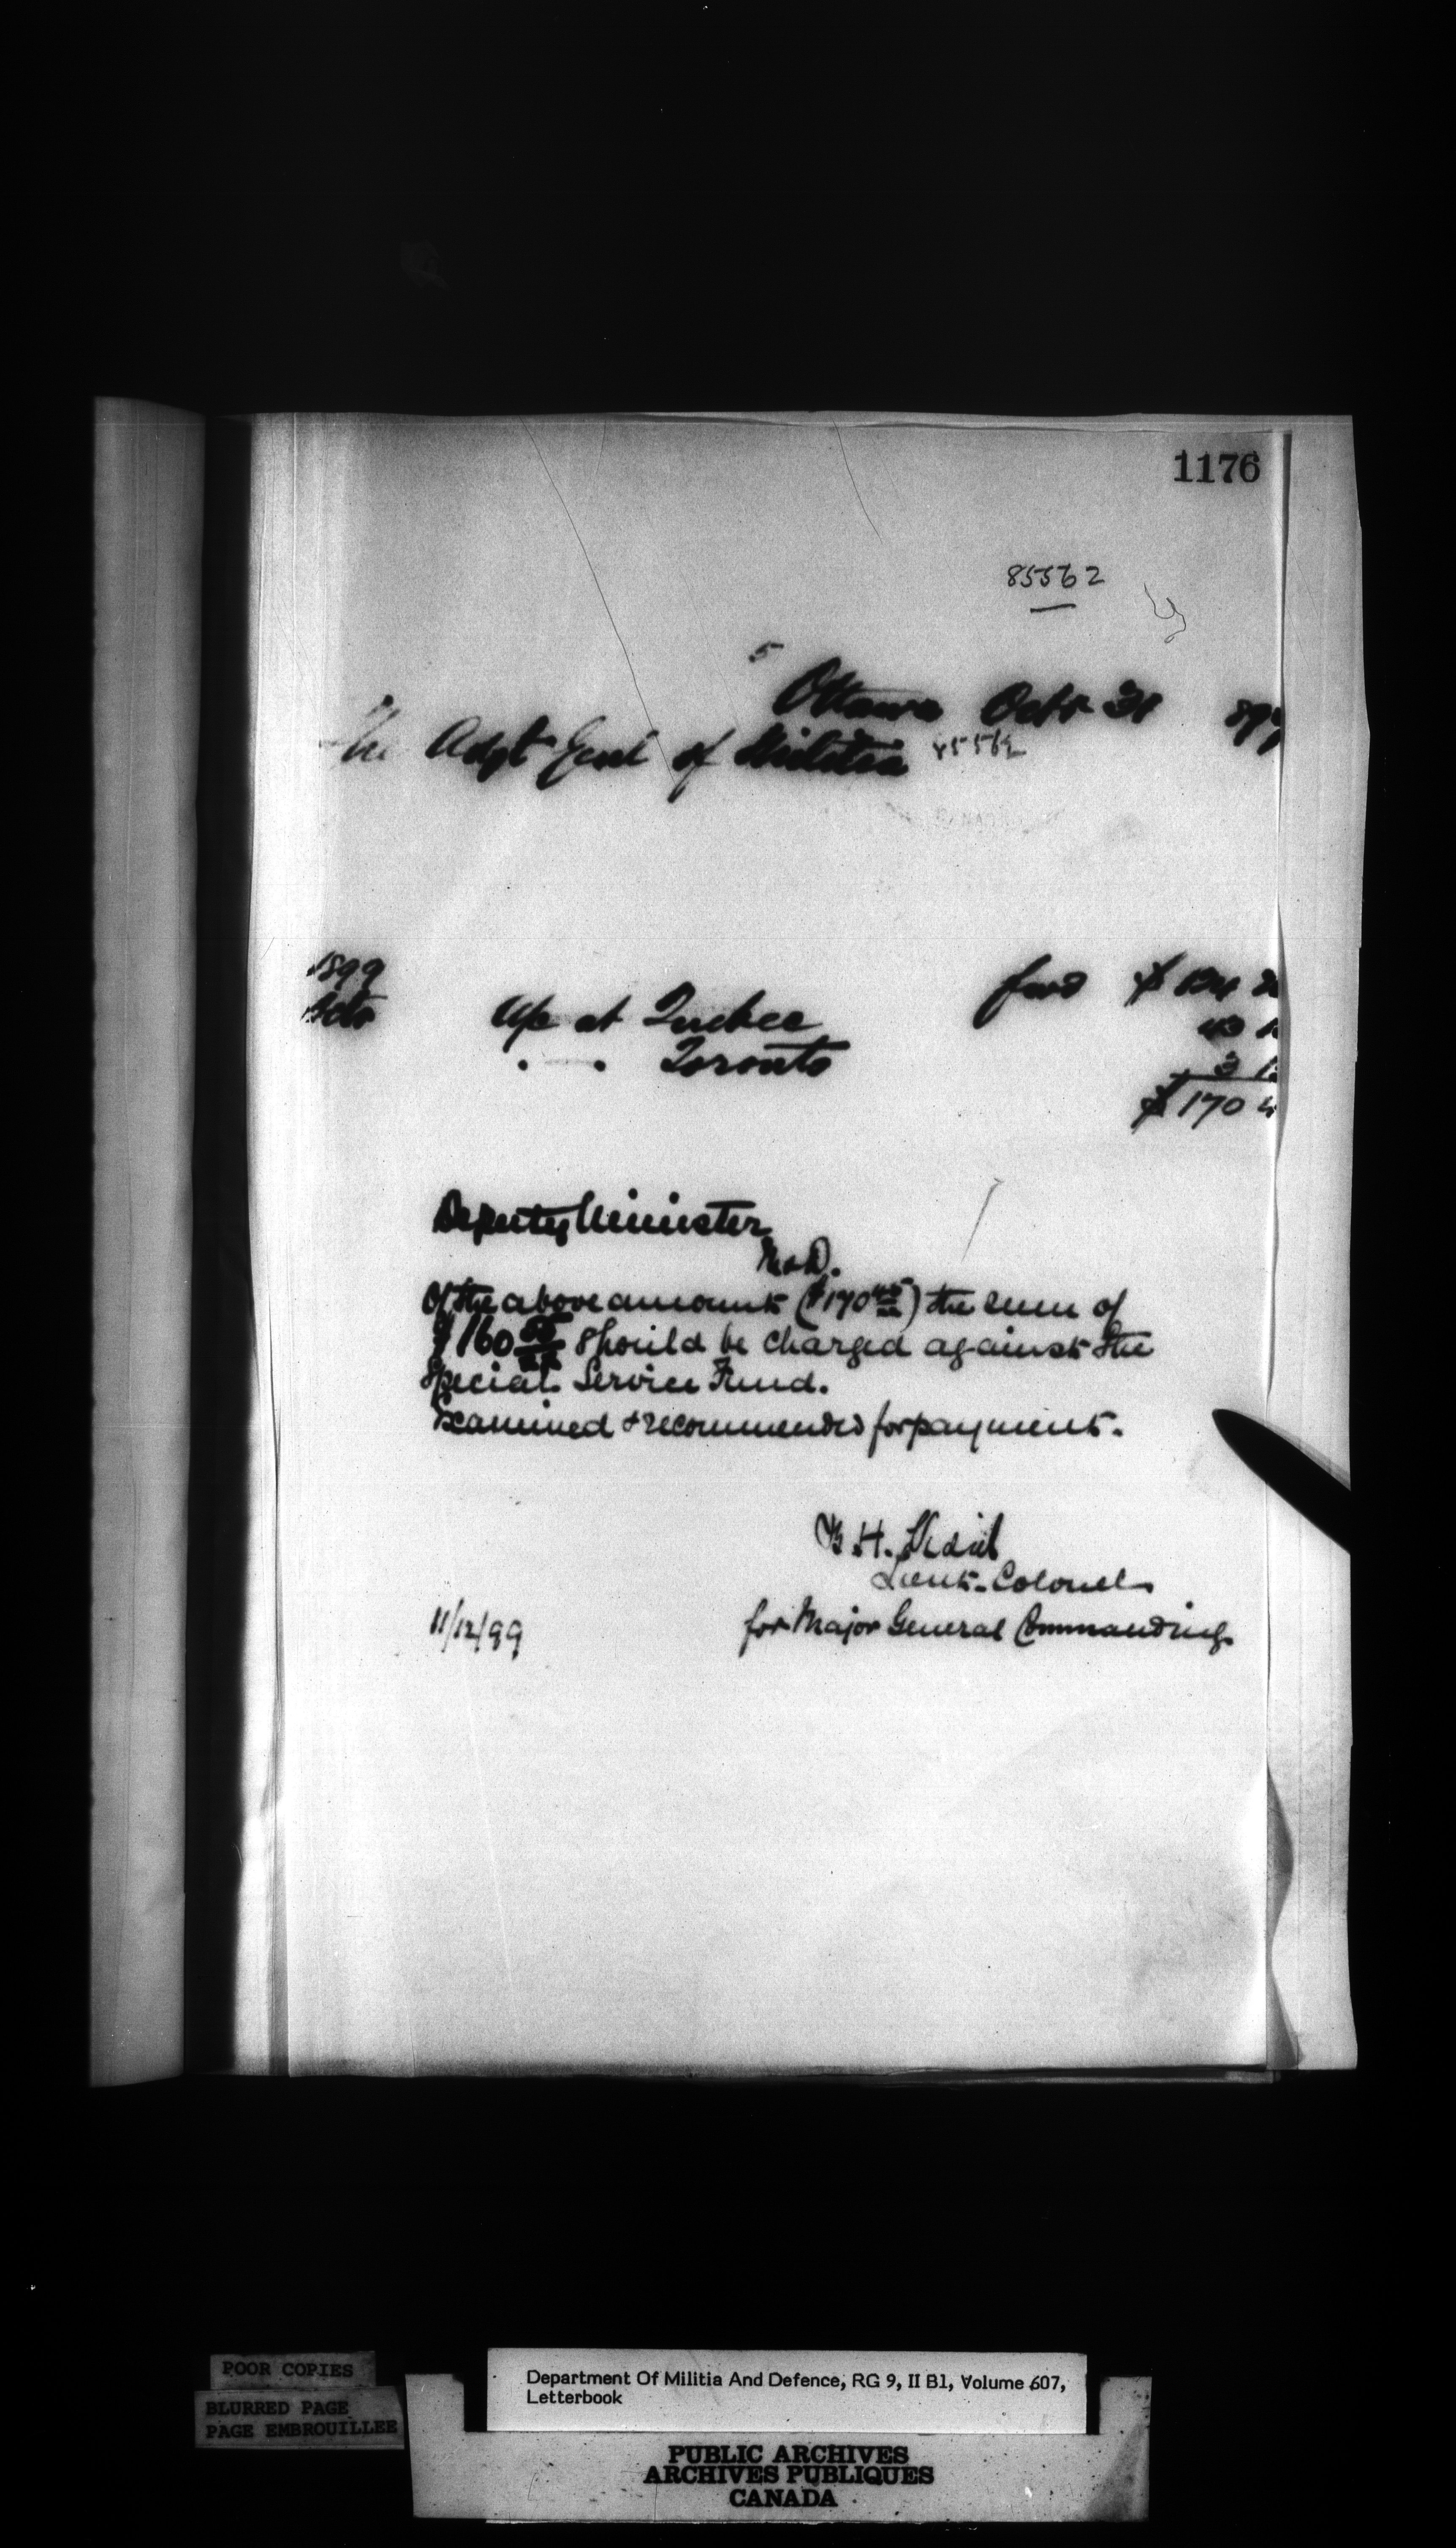 1176
85562
5
Ottawa Octr 31 899
The Adjt Genl of Militia 85562
1899
Octr
fwd $ 124
a/c at Quebec 43
" " Toronto 3
$ 170 4
Deputy Minister
M & D.
Of the above amount ($170 45) the sum of
$160 should be charged against the
Special Service Fund.
Examined & recommended for payment.
B. H. Vidal
Lieut-Colonel
11/12/99 for Major General Commanding
POOR COPIES
BLURRED PAGE
PAGE EMBROUILLEE
Department Of Militia And Defence, RG 9, II B1, Volume 607,
Letterbook
PUBLIC ARCHIVES
ARCHIVES PUBLIQUES
CANADA